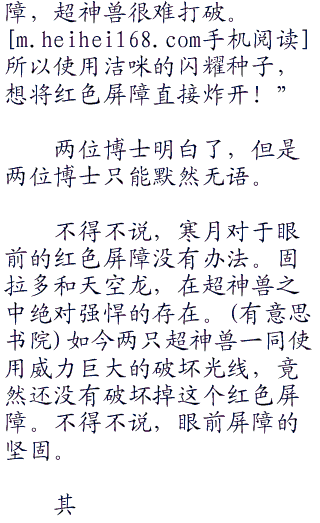 障，超神兽很难打破。
[m.heihei168.com手机阅读]
所以使用洁咪的闪耀种子，
想将红色屏障直接炸开！”
两位博士明白了，但是
两位博士只能默然无语。
不得不说，寒月对于眼
前的红色屏障没有办法。固
拉多和天空龙，在超神兽之
中绝对强悍的存在。(有意思
书院)如今两只超神兽一同使
用威力巨大的破坏光线，竟
然还没有破坏掉这个红色屏
障。不得不说，眼前屏障的
坚固。
其